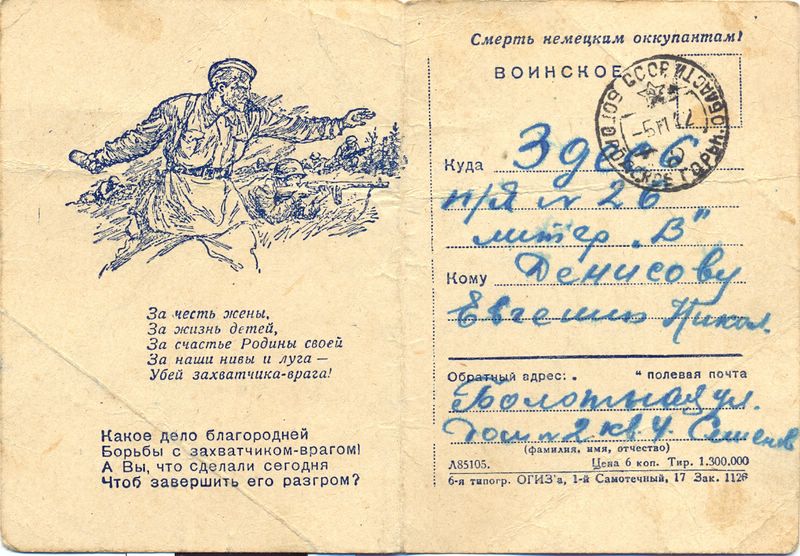 За честь жены,
За жизнь детей,
За счастье Родины своей
За наши нивы и луга —
Убей захватчика-врага!
Какое дело благородней
Борьбы с захватчиком-врагом!
А Вы, что сделали сегодня
Чтоб завершить его разгром?
Смерть немецким оккупантам!
ВОИНСКОЕ
СССР
Куда Здесь
п/я № 26
литер „В"
Кому Денисову
Евгению Никол.
Обратный адрес: „ " полевая почта
Болотная ул.
дом № 2 кв. 4. Семенов
(фамилия, имя, отчество)
Л85105. Цена 6 коп. Тир. 1.300.000
6-я типогр. ОГИЗ'а, 1-й Самотечный, 17 Зак. 1126